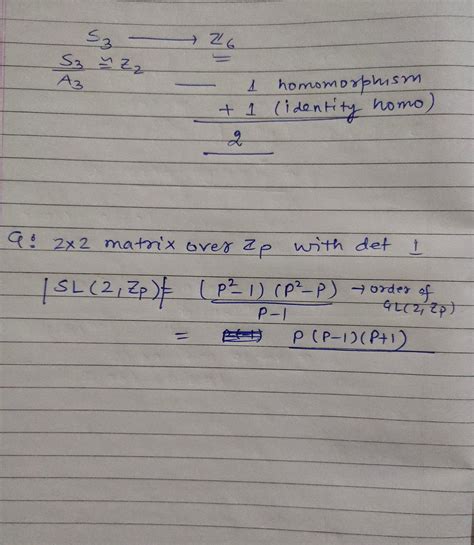 S₃ ⟶ Z₆
S₃/A₃ ≅ Z₂ — 1 homomorphism
+ 1 (identity homo)
2
Q: 2×2 matrix over Zp with det 1
|SL(2, Zp)| = (p²-1)(p²-p)/p-1 → order of GL(2, Zp)
= p(p-1)(p+1)